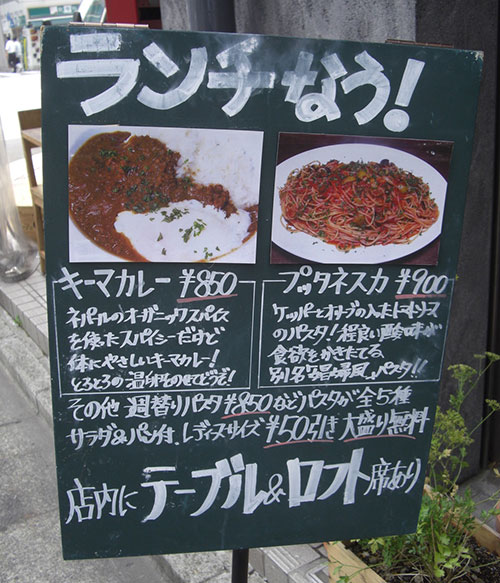 ランチなう!
キーマカレー ¥850
ネパールのオーガニックスパイス
を使たスパイシーだけど
体にやさしいキーマカレー!
とろとろの温卵のせてどうぞ!
プッタネスカ ¥900
ケッパーとオリーブの入たトマトソース
のパスタ!程良い酸味が
食欲をかきたてる
別名"娼婦風"パスタ!!
その他 週替りパスタ¥850などパスタが全5種
サラダ&パン付.レディースサイズ¥50引き 大盛り無料
店内にテーブル&ロフト席あり